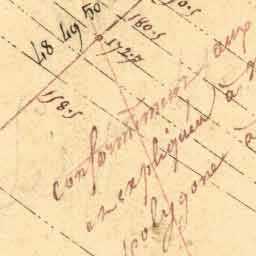 48 49 50
160.5
172.7
158.5
conformément aux
en expliquer à
polygone à